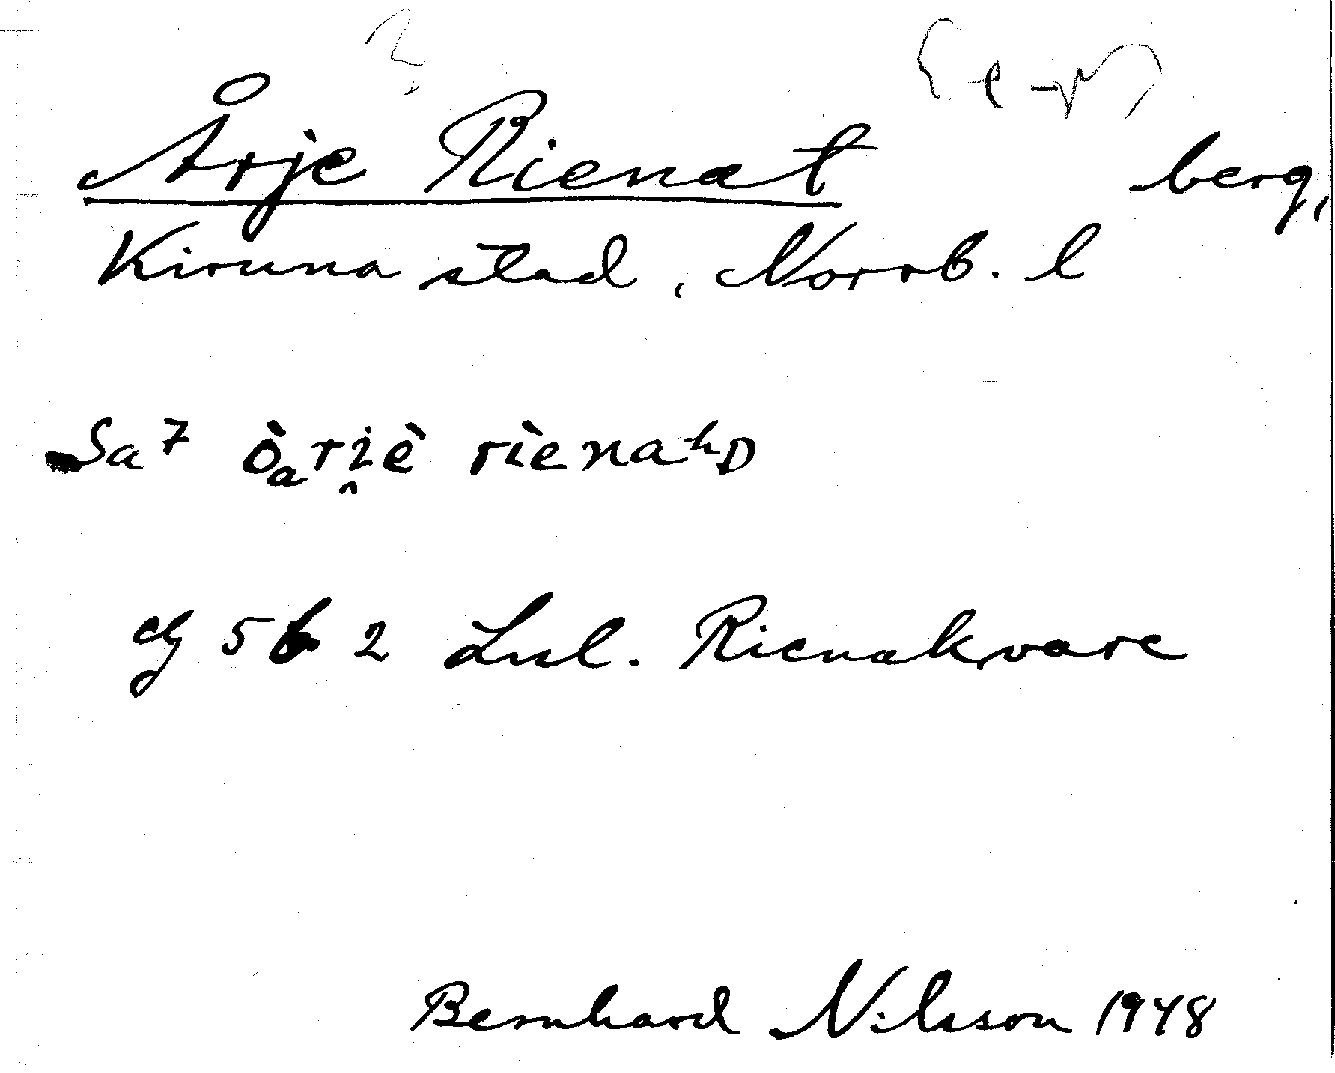 Årje Rienat berg,
Kiruna stad, Norrb. l
Sa⁷ òₐri̯è rìenaʰD
cfj 56 2 Lul. Rienakvare
Bernhard Nilsson 1948